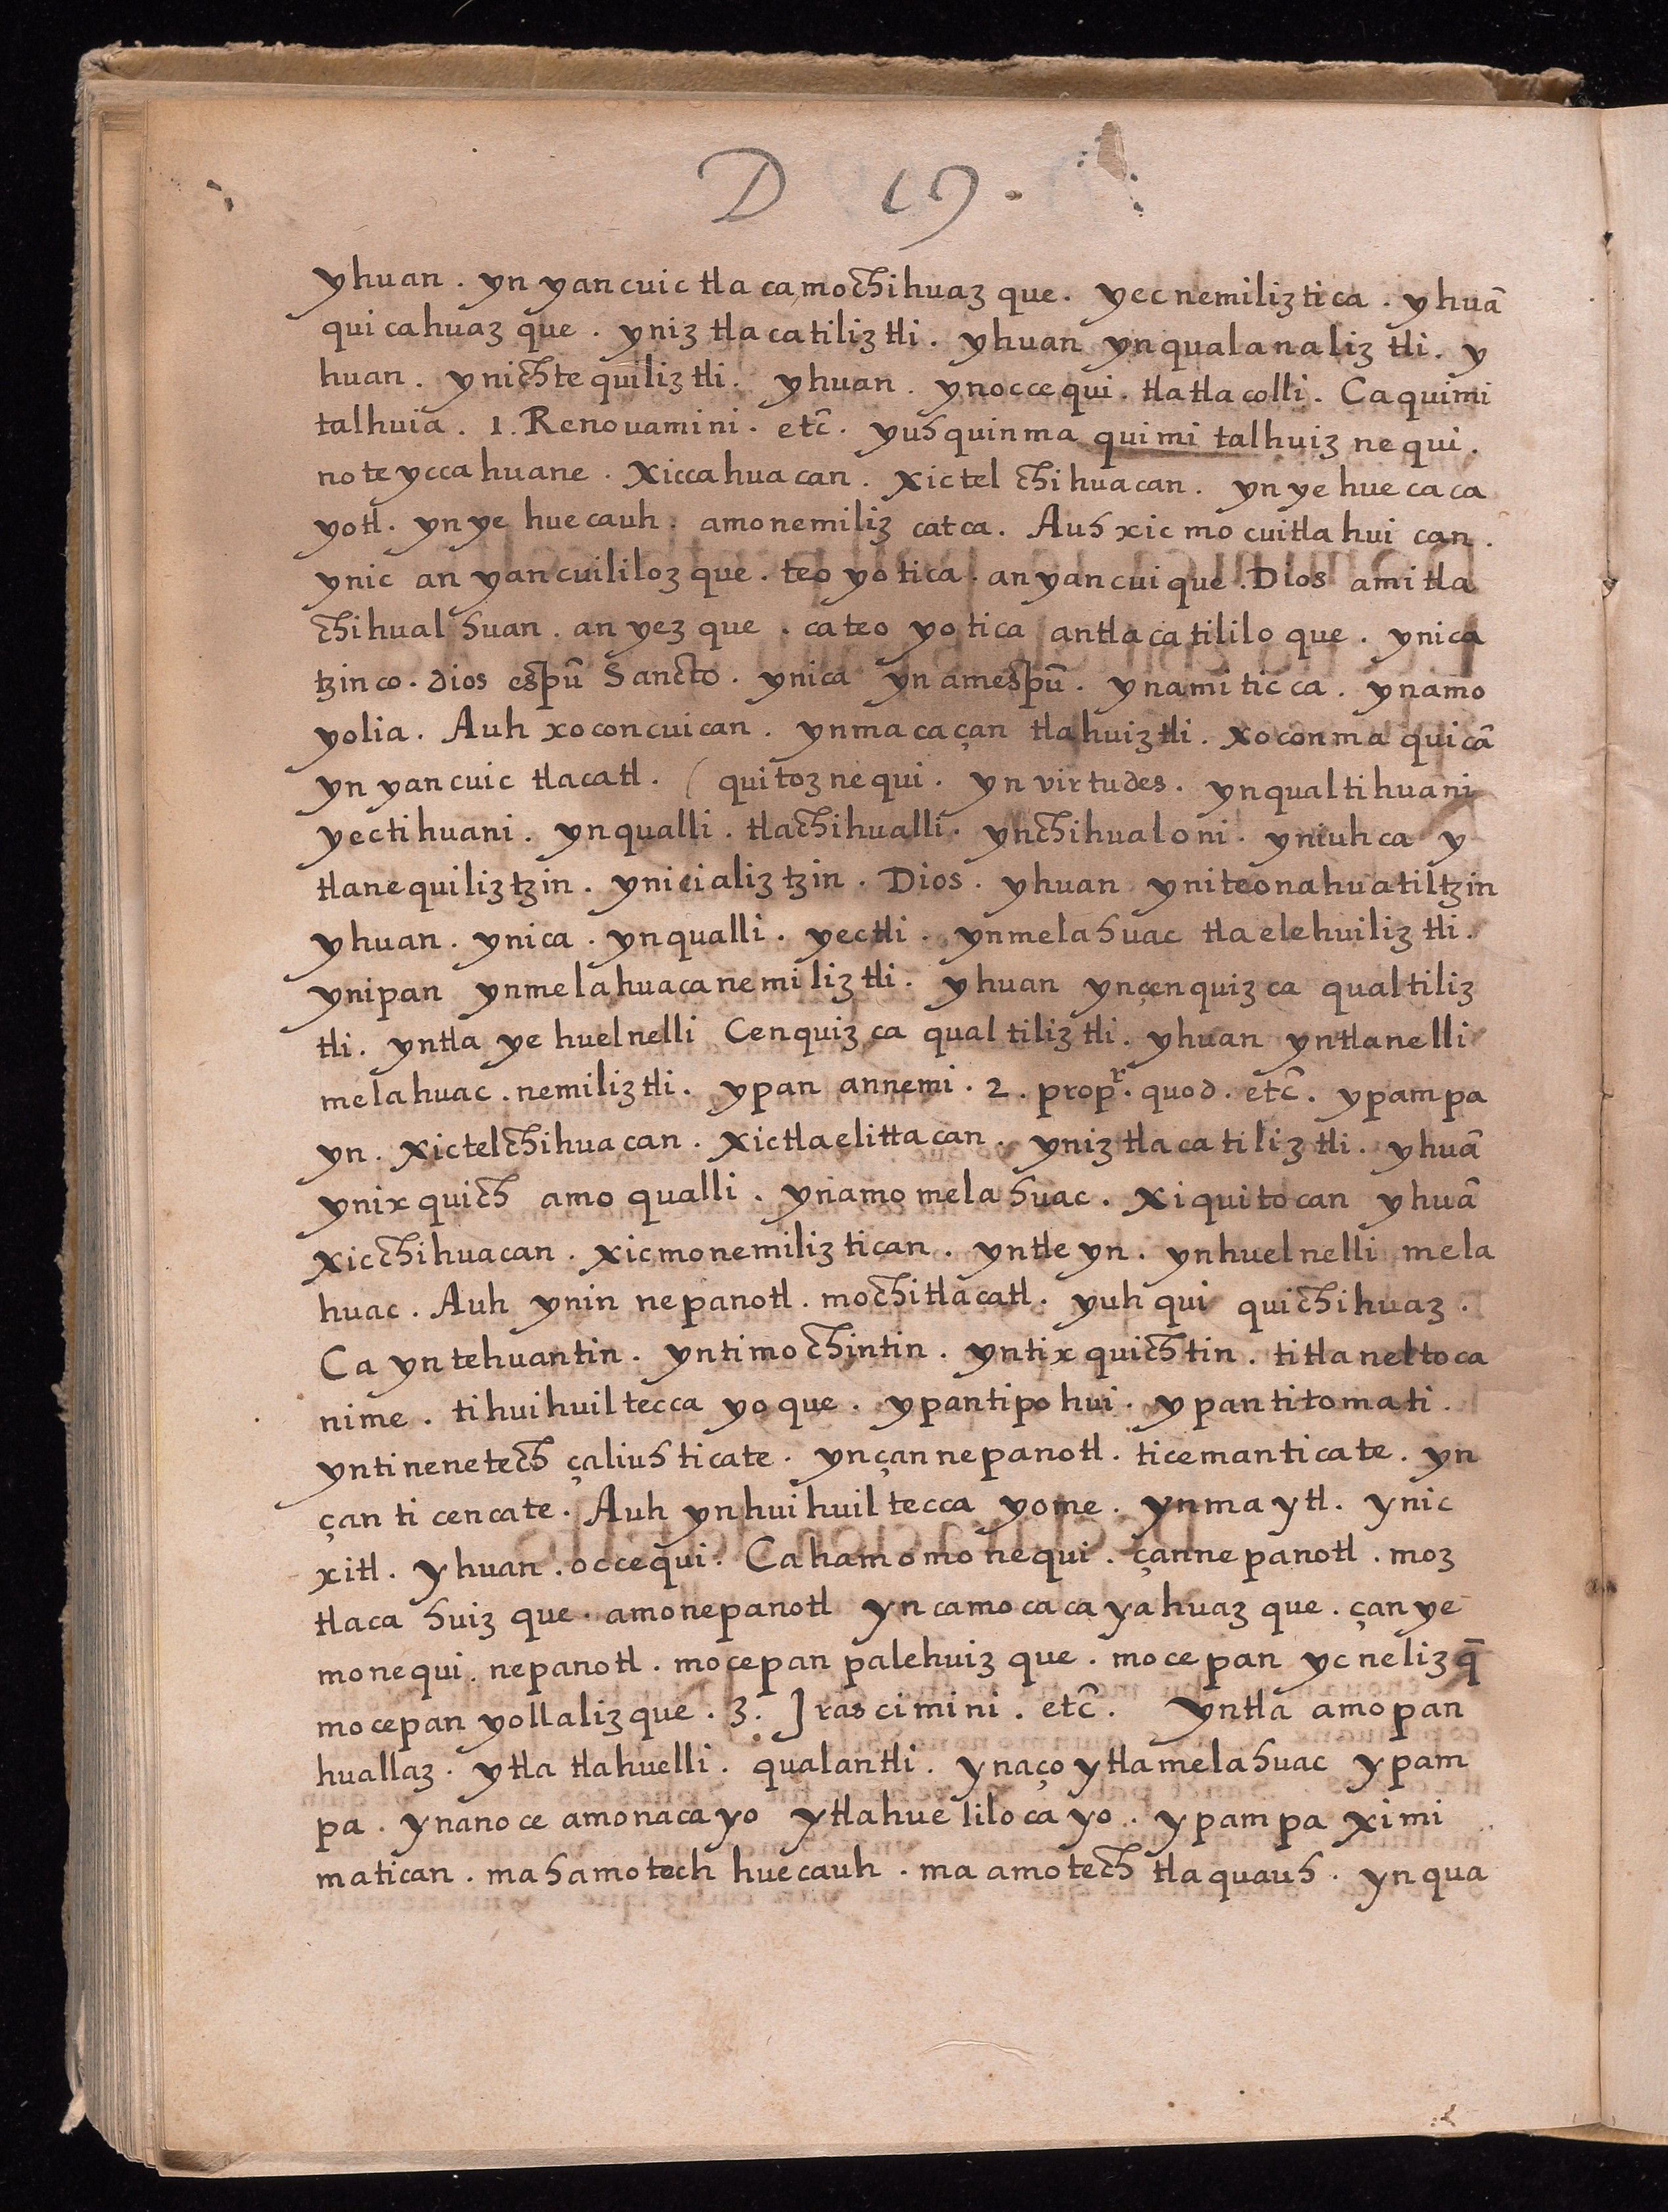 D 19.
yhuan. yn yancuic tlacamochihuazque. yecnemiliztica. yhuā
quicahuazque. yniztlacatiliztli. yhuan ynqualanaliztli. y
huan. ynichtequiliztli. yhuan. ynoccequi. tlatlacolli. Caquimi
talhuia. 1. Renouamini. etc̄. yuhquinma quimitalhuiz nequi.
noteyccahuane. Xiccahuacan. Xictelchihuacan. ynyehuecaca
yotl. ynye huecauh. amonemiliz catca. Auh xicmocuitlahuican.
ynic anyancuililozque. teoyotica. anyancuique. Dios amitla
chihualhuan. anyezque. cateoyotica antlacatililoque. ynica
tzinco. dios espū Sancto. ynica ynamespū. ynamiticca. ynamo
yolia. Auh xoconcuican. ynmacaçan tlahuiztli. xoconmaquicā
yn yancuic tlacatl. ( quitoznequi. yn virtudes. ynqualtihuani
yectihuani. ynqualli. tlachihualli. ynchihualoni. yniuhca y
tlanequiliztzin. ynicializtzin. Dios. yhuan yniteonahuatiltzin
yhuan. ynica. ynqualli. yectli. ynmelahuac tlaelehuiliztli.
ynipan ynmelahuacanemiliztli. yhuan ynçenquizca qualtiliz
tli. yntla ye huelnelli Cenquizca qualtiliztli. yhuan yntlanelli
melahuac. nemiliztli. ypan annemi. 2. propr. quod. etc̄. ypampa
yn. xictelchihuacan. xictlaelittacan. yniztlacatiliztli. yhuā
ynixquich amo qualli. ynamo melahuac. Xiquitocan yhuā
xicchihuacan. xicmonemiliztican. yntleyn. ynhuelnelli mela
huac. Auh ynin nepanotl. mochitlacatl. yuhqui quichihuaz.
Ca yntehuantin. yntimochintin. yntixquichtin. titlaneltoca
nime. tihuihuilteccayoque. ypantipohui. ypantitomati.
yntinenetech çaliuhticate. ynçannepanotl. ticemanticate. yn
çan ti cencate. Auh ynhuihuilteccayome. ynmaytl. ynic
xitl. yhuan. occequi. Cahamomonequi. çannepanotl. moz
tlacahuizque. amonepanotl yncamocacayahuazque. çanye
monequi. nepanotl. mocepanpalehuizque. mocepan ycnelizq̄
mocepanyollalizque. 3. Irascimini. etc̄. yntla amopan
huallaz. ytla tlahuelli. qualantli. ynaço ytlamelahuac ypam
pa. ynanoce amonacayo ytlahuelilocayo. ypampa ximi
matican. mahamotech huecauh. ma amotech tlaquauh. ynqua